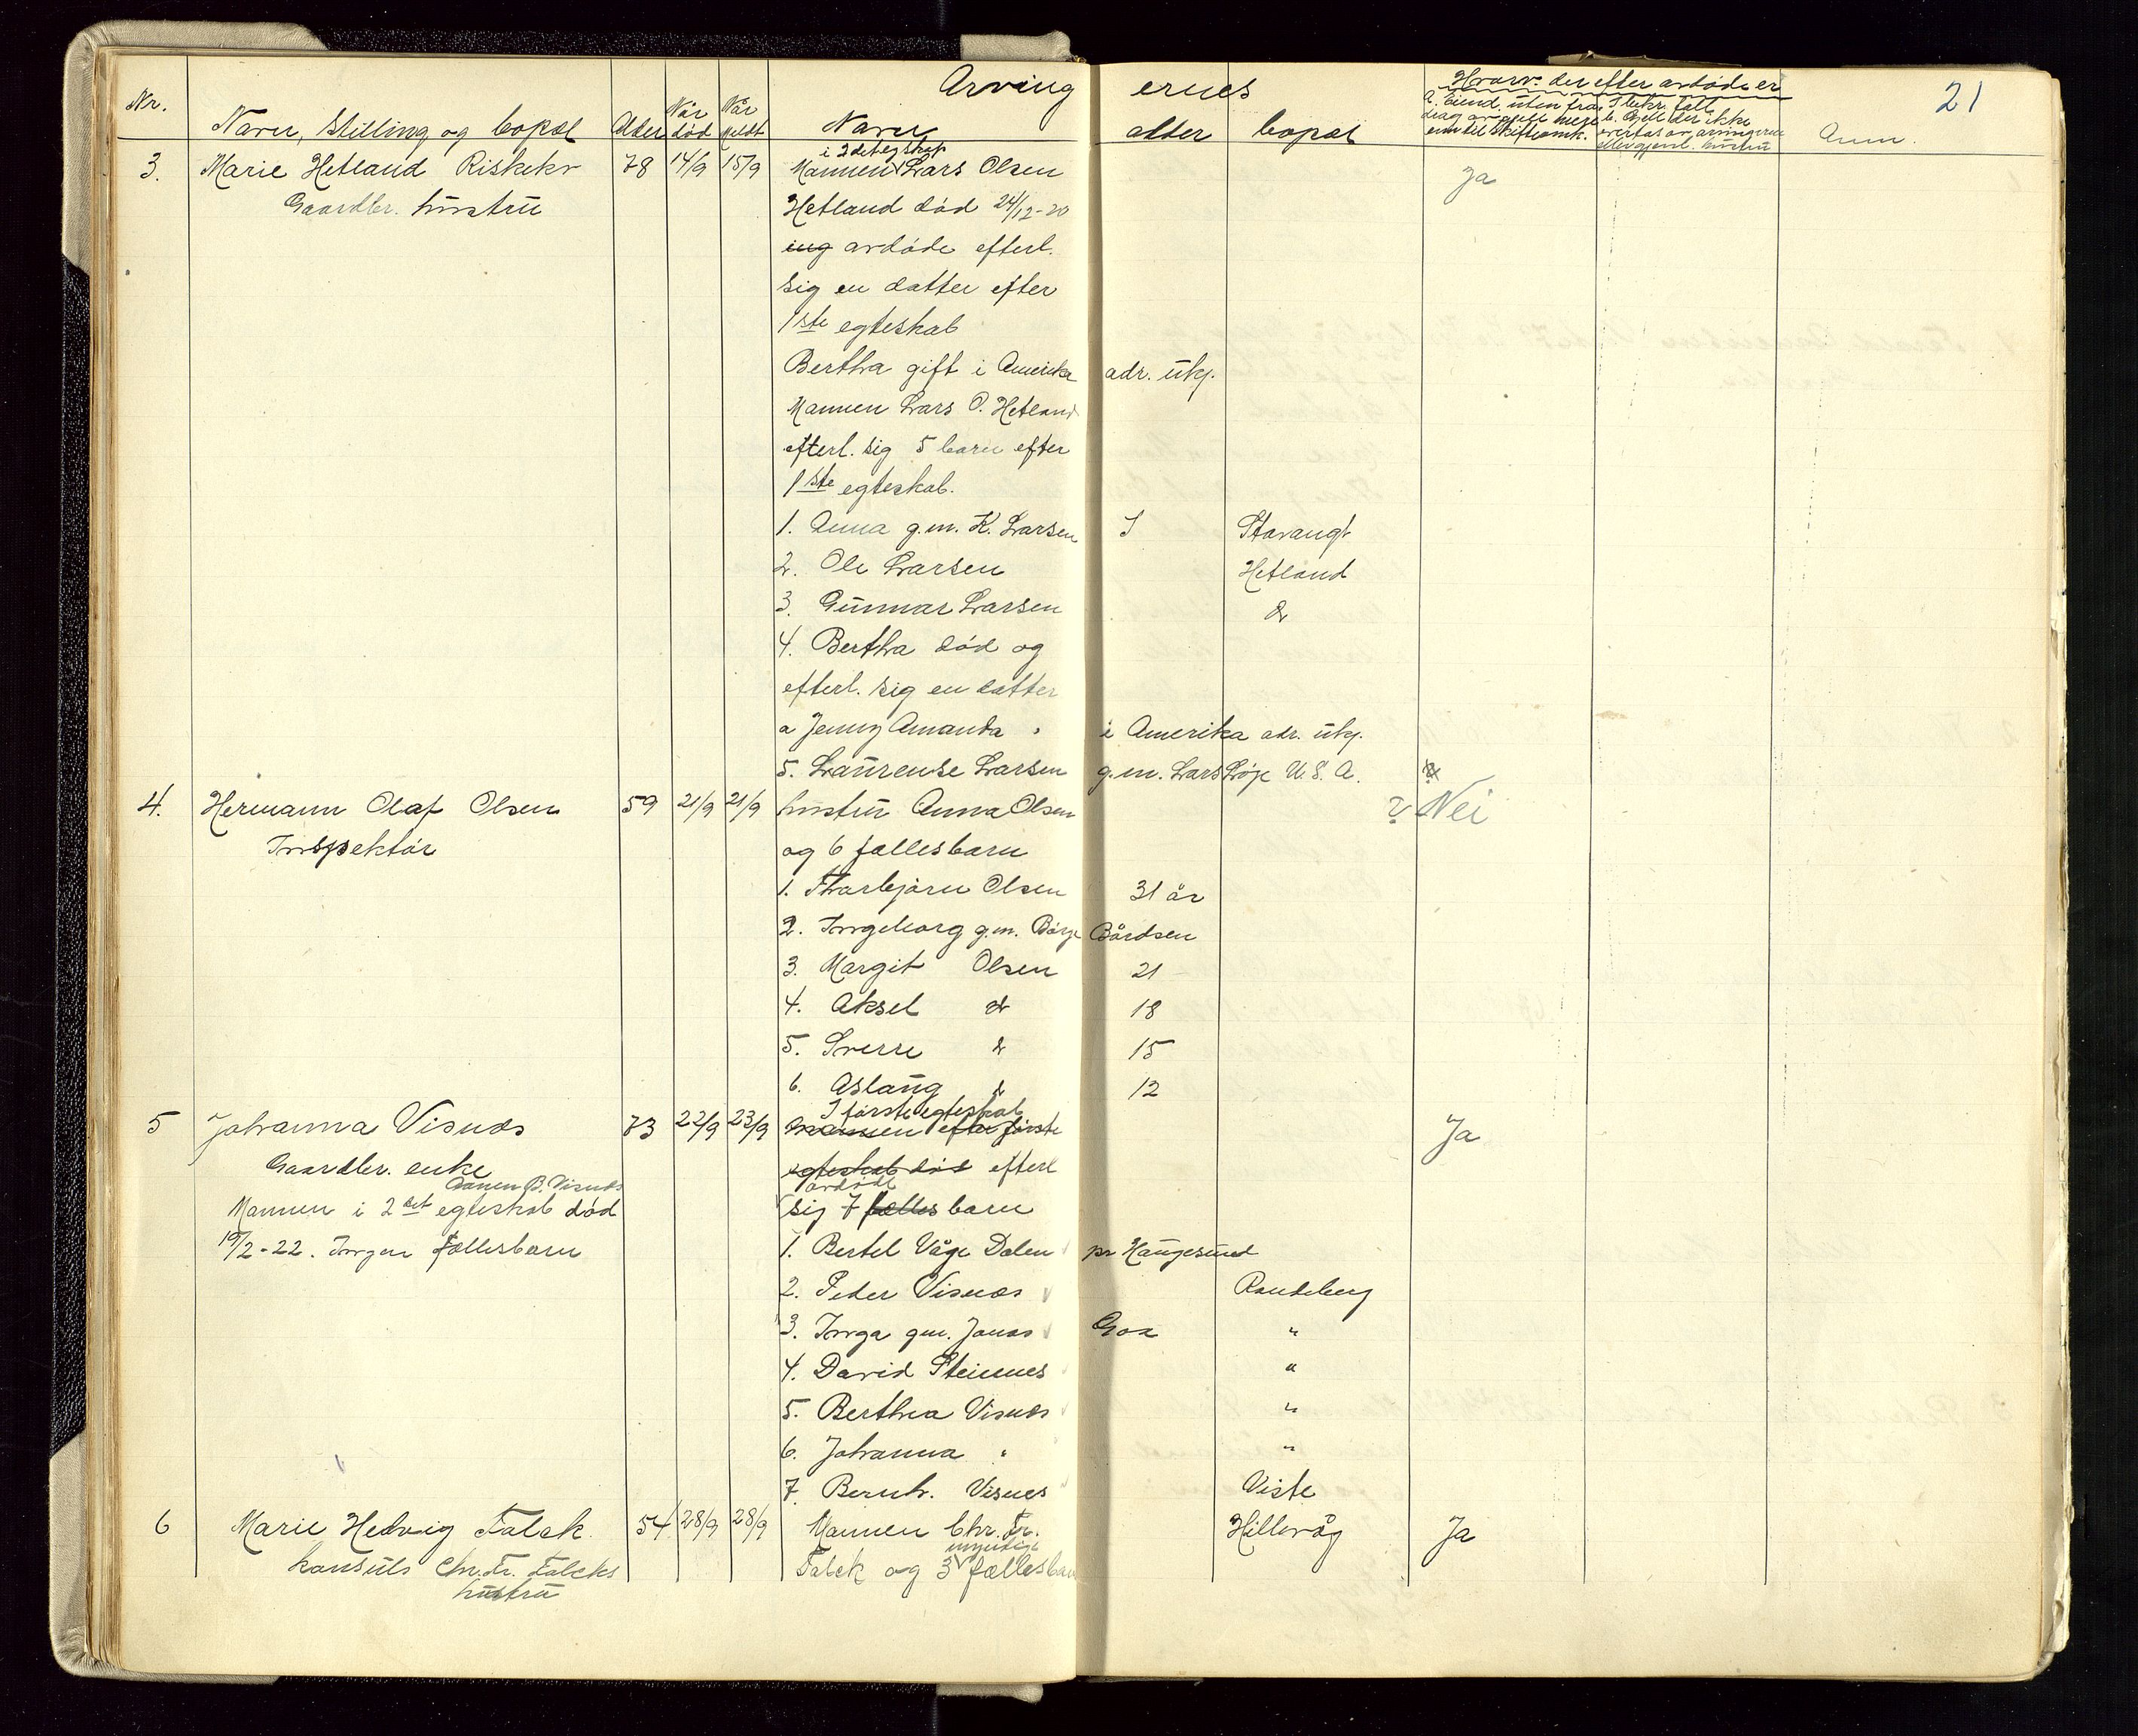 Arvingernes
21
Nr. Navn, Stilling og bopæl Alder Når død Når meldt Navn alder bopæl Anm.
Hvorv der efter avdøde er
3. Marie Hetland Riskekv 78 14/9 15/9 Mannen i 2det egskap Lars Olsen Ja
Gaardbr. hustru Hetland død 24/12-20
ing avdøde efterl.
sig en datter efter
1ste egteskab
Bertha gift i Amerika adr. ukj.
Mannen Lars O. Hetland
efterl. sig 5 barn efter
1ste egteskab.
1. Anna g.m. K. Larsen I Stavangr
2. Ole Larsen Hetland
3. Gunnar Larsen do
4. Bertha död og
efterl. sig en datter
a Jenny Amanda i Amerika adr. ukj.
5. Laurense Larsen g.m. Lars Løge U.S.A.
4. Hermann Olaf Olsen 59 21/9 21/9 hustru Anna Olsen ? Nei
Inspektør og 6 fællesbarn
1. Thorbjørn Olsen 31 år
2. Ingeborg g.m. Börge Bårdsen
3. Margit Olsen 21
4. Aksel do 18
5. Sverre do 15
6. Aslaug do 12
I förste egteskab
5 Johanna Visnes 73 22/9 23/9 Mannen efter förste Ja
Gaardbr. enke egteskab död efterl
Mannen i 2det egteskab død avdöde
19/2-22. Ingen fællesbarn sig 7 fælles barn
1. Bertel Våge Dalen pr Haugesund
2. Peder Visnes Randeberg
3. Inga gm. Jonas Goa "
4. David Steinnes "
5. Berthea Visnes "
6. Johanna " "
7. Bernh. Visnes Viste
6 Marie Hedvig Falck 54 28/9 28/9 Mannen Chr. Fr. Hillevåg Ja
konsuls Chr. Fr. Falcks umyndige
hustru Falck og 3 fællesbarn